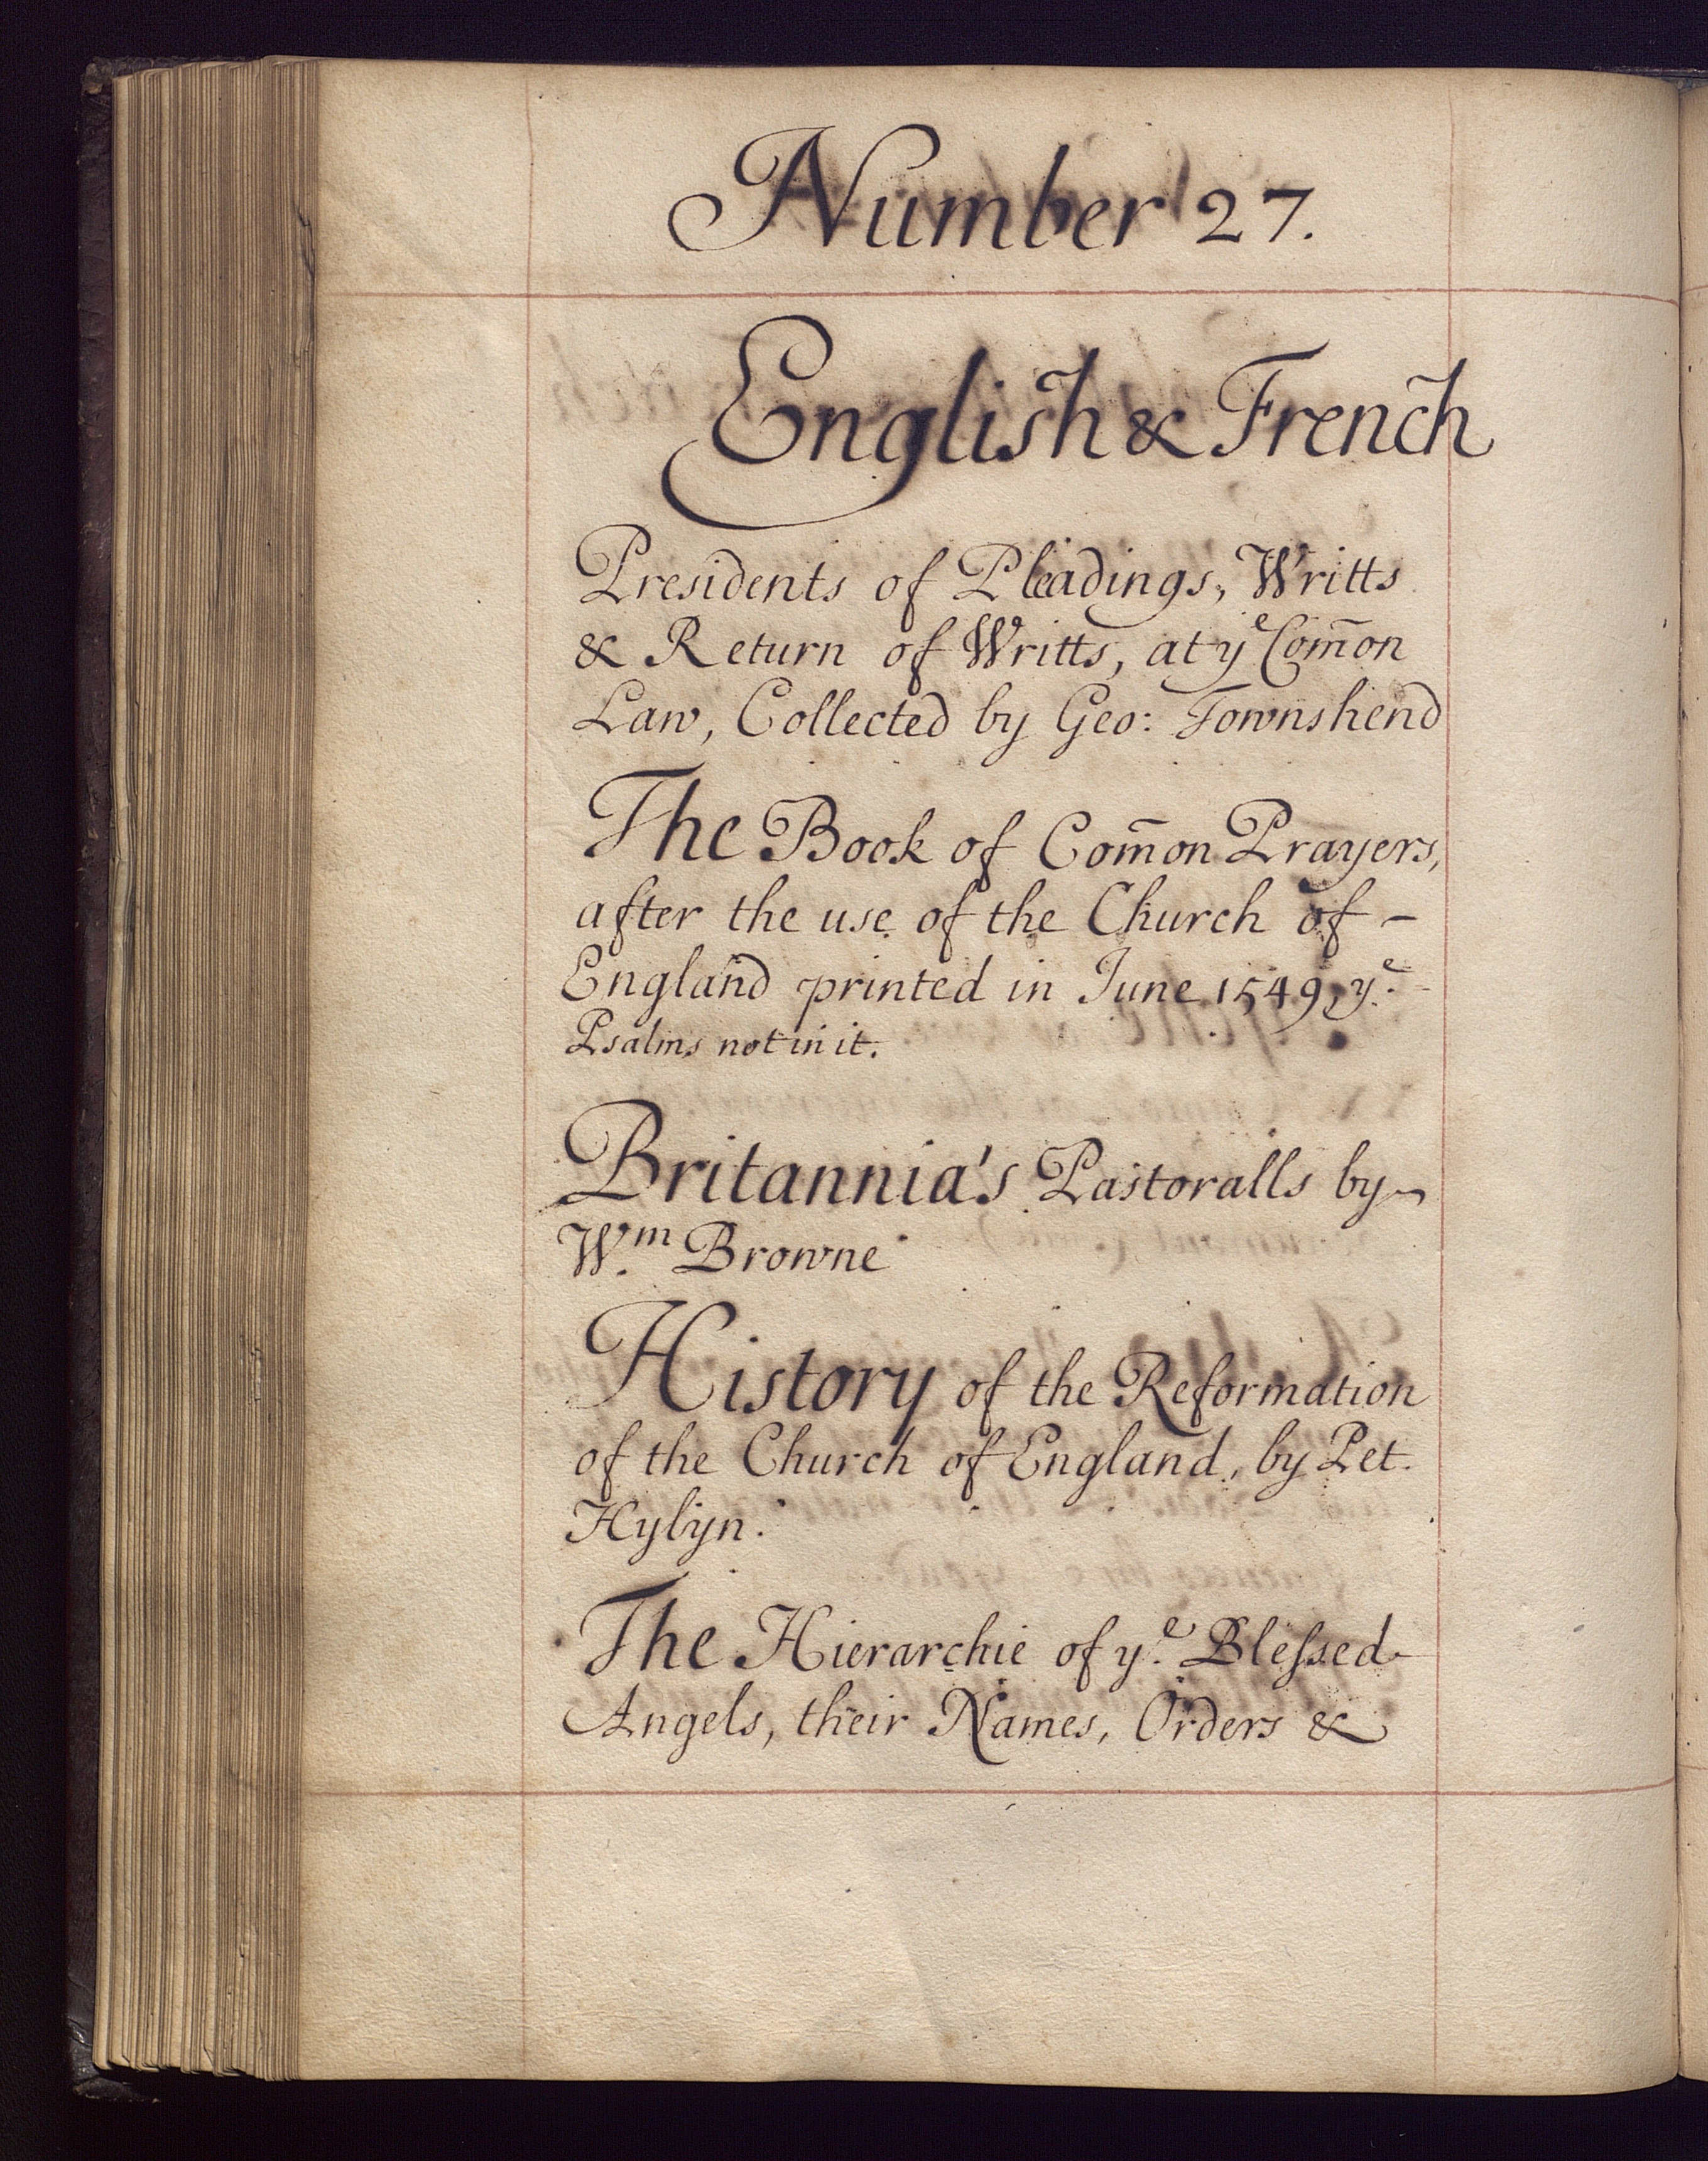 Number 27.
English & French
Presidents of Pleadings, Writts
& Return of Writts, at yᵉ Com̄on
Law, Collected by Geo: Townshend
The Book of Com̄on Prayers,
after the use of the Church of –
England printed in June 1549, yᵉ.
Psalms not in it.
Britannia's Pastoralls by
Wᵐ. Browne
History of the Reformation
of the Church of England, by Pet.
Hylyn.
The Hierarchie of yᵉ. Bleſsed
Angels, their Names, Orders &